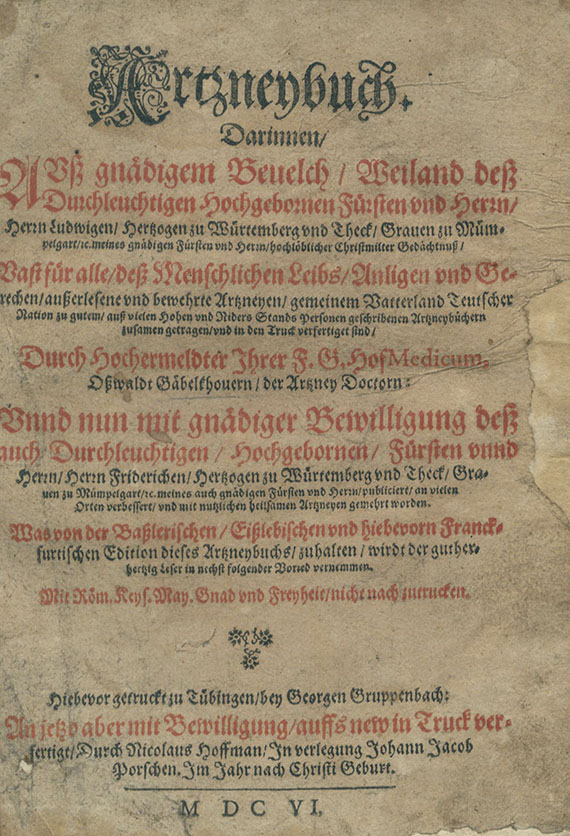 Artzneybuch.
Darinnen/
AVß gnädigem Beuelch / Weiland deß
Durchleuchtigen Hochgebornen Fürsten vnd Herrn/
Herrn Ludwigen/ Hertzogen zu Würtemberg vnd Theck/ Grauen zu Müm-
pelgart/ꝛc. meines gnädigen Fürsten vnd Herrn/ hochlöblicher Christmilter Gedächtnuß/
Vast für alle/ deß Menschlichen Leibs/ Anligen vnd Ge-
rechen/ außerlesene vnd bewehrte Artzneyen/ gemeinem Vatterland Teutscher
Nation zu gutem/ auß vielen Hohen vnd Niders Stands Personen geschribenen Artzneybüchern
zusamen getragen/ vnd in den Truck verfertiget sind/
Durch Hochermeldter Ihrer F. G. HofMedicum,
Oßwaldt Gäbelkhouern/ der Artzney Doctorn:
Vnnd nun mit gnädiger Bewilligung deß
auch Durchleuchtigen / Hochgebornen / Fürsten vnnd
Herrn/ Herrn Friderichen/ Hertzogen zu Würtemberg vnd Theck/ Gra-
uen zu Mümpelgart/ꝛc. meines auch gnädigen Fürsten vnd Herrn/ publiciert/ an vielen
Orten verbessert/ vnd mit nutzlichen heilsamen Artzneyen gemehrt worden.
Was von der Baßlerischen / Eißlebischen vnd hiebevorn Franck-
furtischen Edition dieses Artzneybuchs/ zuhalten / wirdt der guther-
hertzig Leser in nechst folgender Vorred vernemmen.
Mit Röm. Keys. May. Gnad vnd Freyheit/ nicht nach zutrucken.
Hiebevor getruckt zu Tübingen/ bey Georgen Gruppenbach:
An jetzo aber mit Bewilligung/ auffs new in Truck ver-
fertigt/ Durch Nicolaus Hoffman/ In verlegung Johann Jacob
Porschen. Im Jahr nach Christi Geburt.
M DC VI.